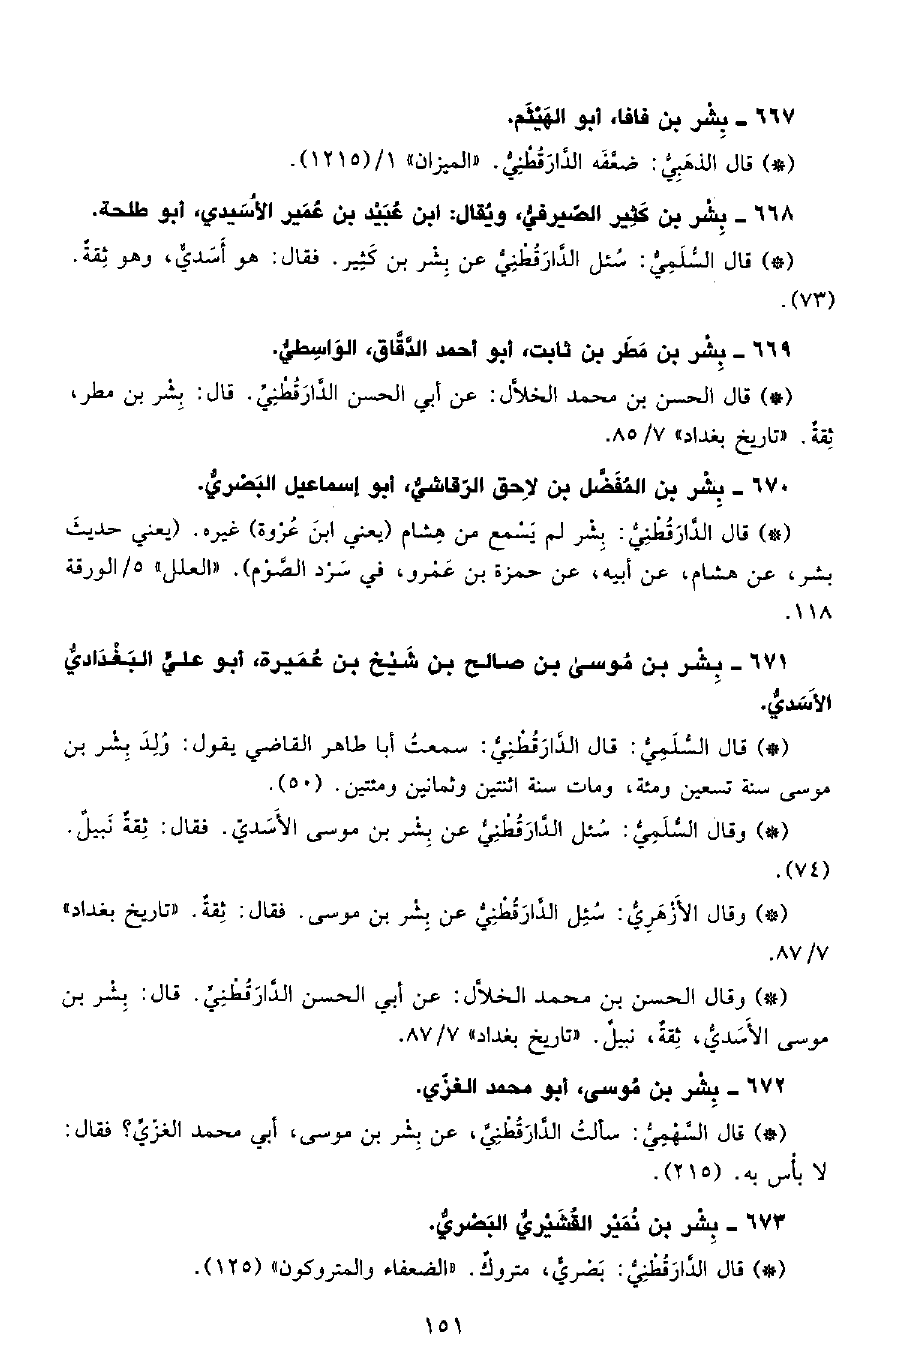 ٦٦٧ ـ بِشْر بن فافا، أبو الهَيْثَم.
(*) قال الذهَبِيُّ: ضعَّفَه الدَّارَقُطْنِيُّ. «الميزان» ١/(١٢١٥).
٦٦٨ ـ بِشْر بن كَثِير الصَّيرفيُّ، ويُقال: ابن عُبَيْد بن عُمَير الأُسَيدي، أبو طلحة.
(*) قال السُّلَمِيُّ: سُئل الدَّارَقُطْنِيُّ عن بِشْر بن كَثِير. فقال: هو أَسَديٌّ، وهو ثِقةٌ.
(٧٣).
٦٦٩ ـ بِشْر بن مَطَر بن ثابت، أبو أحمد الدَّقَّاق، الوَاسِطيُّ.
(*) قال الحسن بن محمد الخلاَّل: عن أبي الحسن الدَّارَقُطْنِيِّ. قال: بِشْر بن مطر،
ثِقةٌ. «تاريخ بغداد» ٧/ ٨٥.
٦٧٠ ـ بِشْر بن المُفَضَّل بن لاحِق الرَّقاشيُّ، أبو إسماعيل البَصْريُّ.
(*) قال الدَّارَقُطْنِيُّ: بِشْر لم يَسْمع من هِشام (يعني ابنَ عُرْوة) غيره. (يعني حديثَ
بشر، عن هشام، عن أبيه، عن حمزة بن عَمْرو، في سَرْد الصَّوْم). «العلل» ٥/ الورقة
١١٨.
٦٧١ ـ بِشْر بن مُوسىٰ بن صالح بن شَيْخ بن عُمَيرة، أبو عليٍّ البَغْدَاديُّ
الأَسَديُّ.
(*) قال السُّلَمِيُّ: قال الدَّارَقُطْنِيُّ: سمعتُ أبا طاهر القاضي يقول: وُلِدَ بِشْر بن
موسى سنة تسعين ومئة، ومات سنة اثنتين وثمانين ومئتين. (٥٠).
(*) وقال السُّلَمِيُّ: سُئل الدَّارَقُطْنِيُّ عن بِشْر بن موسى الأَسَديّ. فقال: ثِقةٌ نَبيلٌ.
(٧٤).
(*) وقال الأَزْهَرِيُّ: سُئِل الدَّارَقُطْنِيُّ عن بِشْر بن موسى. فقال: ثِقةٌ. «تاريخ بغداد»
٧/ ٨٧.
(*) وقال الحسن بن محمد الخلاَّل: عن أبي الحسن الدَّارَقُطْنِيِّ. قال: بِشْر بن
موسى الأَسَديُّ، ثِقةٌ، نبيلٌ. «تاريخ بغداد» ٧/ ٨٧.
٦٧٢ ـ بِشْر بن مُوسى، أبو محمد الغزِّي.
(*) قال السَّهْمِيُّ: سألتُ الدَّارَقُطْنِيَّ، عن بِشْر بن موسى، أبي محمد الغزِّيِّ؟ فقال:
لا بأْس به. (٢١٥).
٦٧٣ ـ بِشْر بن نُمَيْر القُشَيْريُّ البَصْريُّ.
(*) قال الدَّارَقُطْنِيُّ: بَصْريٌّ، متروكٌ. «الضعفاء والمتروكون» (١٢٥).
١٥١